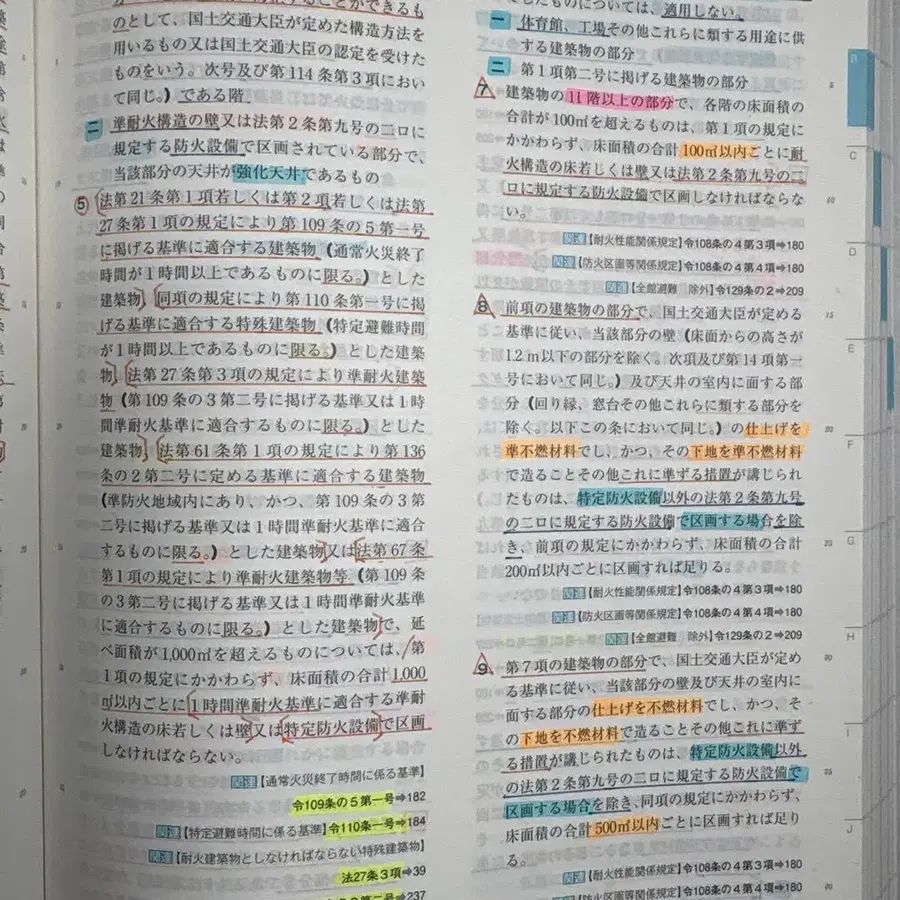 のとして、国土交通大臣が定めた構造方法を
用いるもの又は国土交通大臣の認定を受けた
ものをいう。次号及び第114条第3項におい
て同じ。）である階
二 準耐火構造の壁又は法第2条第九号の二ロに
規定する防火設備で区画されている部分で、
当該部分の天井が強化天井であるもの
⑤ 法第21条第1項若しくは第2項若しくは法第
27条第1項の規定により第109条の5第一号
に掲げる基準に適合する建築物（通常火災終了
時間が1時間以上であるものに限る。）とした
建築物、同項の規定により第110条第一号に掲
げる基準に適合する特殊建築物（特定避難時間
が1時間以上であるものに限る。）とした建築
物、法第27条第3項の規定により準耐火建築
物（第109条の3第二号に掲げる基準又は1時
間準耐火基準に適合するものに限る。）とした
建築物、法第61条第1項の規定により第136
条の2第二号に定める基準に適合する建築物
（準防火地域内にあり、かつ、第109条の3第
二号に掲げる基準又は1時間準耐火基準に適合
するものに限る。）とした建築物又は法第67条
第1項の規定により準耐火建築物等（第109条
の3第二号に掲げる基準又は1時間準耐火基準
に適合するものに限る。）とした建築物で、延
べ面積が1,000㎡を超えるものについては、第
1項の規定にかかわらず、床面積の合計1,000
㎡以内ごとに1時間準耐火基準に適合する準耐
火構造の床若しくは壁又は特定防火設備で区画
しなければならない。
関連【通常火災終了時間に係る基準】
令109条の5第一号⇒182
関連【特定避難時間に係る基準】令110条一号⇒184
関連【耐火建築物としなければならない特殊建築物】
法27条3項⇒39
⇒237
ついては、適用しない。
一 体育館、工場その他これらに類する用途に供
する建築物の部分
二 第1項第二号に掲げる建築物の部分
7 建築物の11階以上の部分で、各階の床面積の
合計が100㎡を超えるものは、第1項の規定に
かかわらず、床面積の合計100㎡以内ごとに耐
火構造の床若しくは壁又は法第2条第九号の二
ロに規定する防火設備で区画しなければならな
い。
関連【耐火性能関係規定】令108条の4第3項⇒180
関連【防火区画等関係規定】令108条の4第4項⇒180
関連【全館避難 除外】令129条の2⇒209
8 前項の建築物の部分で、国土交通大臣が定める
基準に従い、当該部分の壁（床面からの高さが
1.2m以下の部分を除く。次項及び第14項第一
号において同じ。）及び天井の室内に面する部
分（回り縁、窓台その他これらに類する部分を
除く。以下この条において同じ。）の仕上げを
準不燃材料でし、かつ、その下地を準不燃材料
で造ることその他これに準ずる措置が講じられ
たものは、特定防火設備以外の法第2条第九号
の二ロに規定する防火設備で区画する場合を除
き、前項の規定にかかわらず、床面積の合計
200㎡以内ごとに区画すれば足りる。
関連【耐火性能関係規定】令108条の4第3項⇒180
関連【防火区画等関係規定】令108条の4第4項⇒180
関連【全館避難 除外】令129条の2⇒209
9 第7項の建築物の部分で、国土交通大臣が定め
る基準に従い、当該部分の壁及び天井の室内に
面する部分の仕上げを不燃材料でし、かつ、そ
の下地を不燃材料で造ることその他これに準ず
る措置が講じられたものは、特定防火設備以外
の法第2条第九号の二ロに規定する防火設備で
区画する場合を除き、同項の規定にかかわらず、
床面積の合計500㎡以内ごとに区画すれば足り
る。
関連【耐火性能関係規定】令108条の4第3項⇒180
関連【防火区画等関係規定】令108条の4第4項⇒180
B
C
D
E
F
G
H
I
J